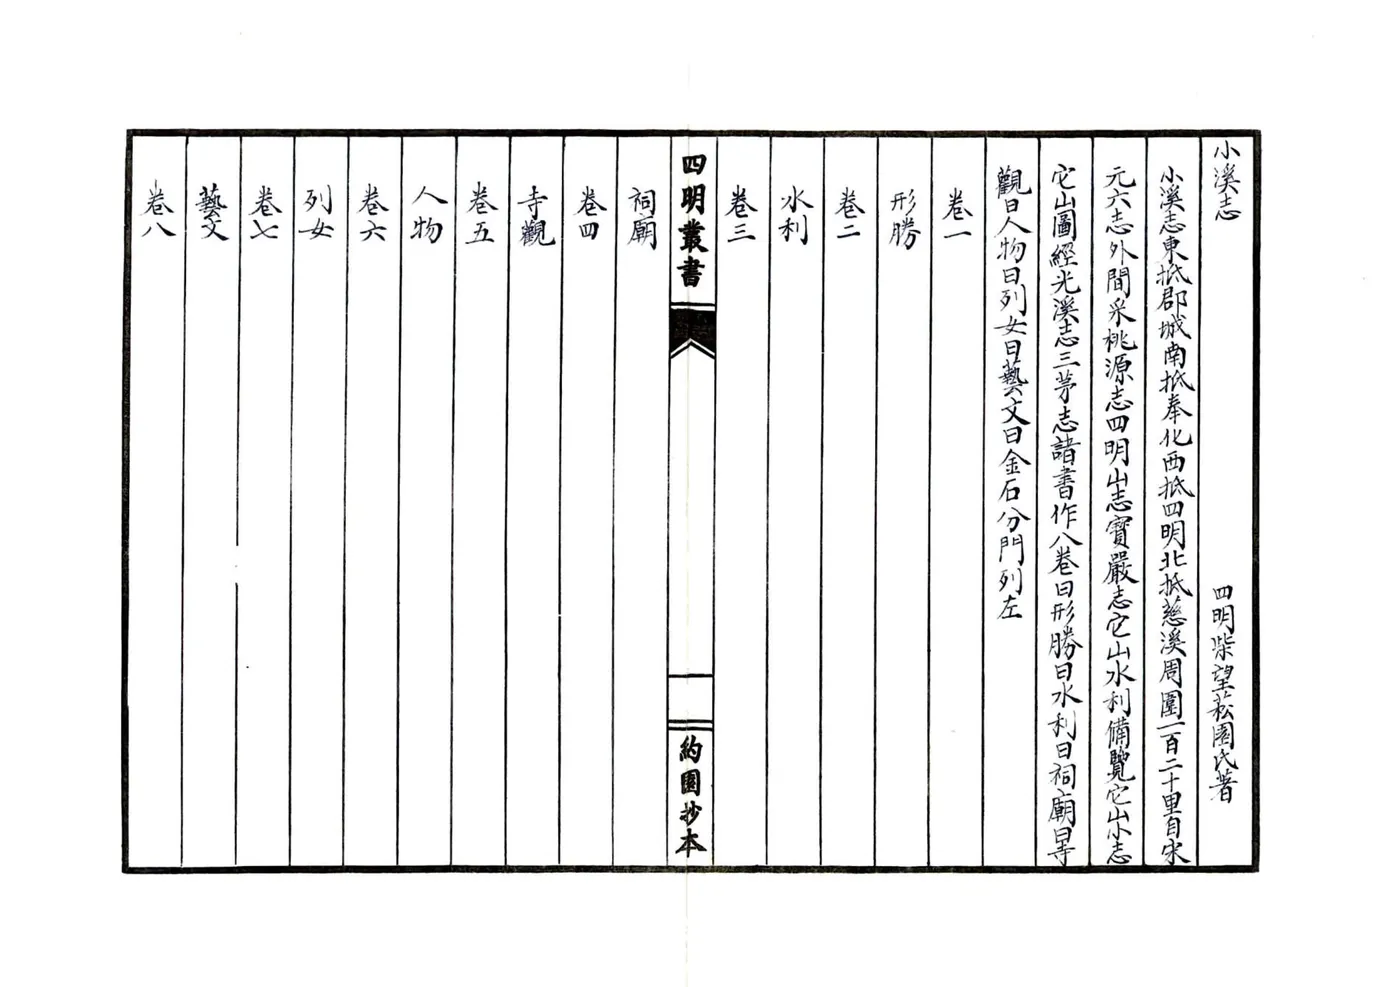 小溪志
四明柴望菘園氏著
小溪志東抵郡城南抵奉化西抵四明北抵慈溪周圍一百二十里自宋
元六志外間采桃源志四明山志寶嚴志它山水利備覽它山小志
它山圖經光溪志三茅志諸書作八卷曰形勝曰水利曰祠廟曰寺
觀曰人物曰列女曰藝文曰金石分門列左
卷一
形勝
卷二
水利
卷三
四明叢書
約園抄本
祠廟
卷四
寺觀
卷五
人物
卷六
列女
卷七
藝文
卷八